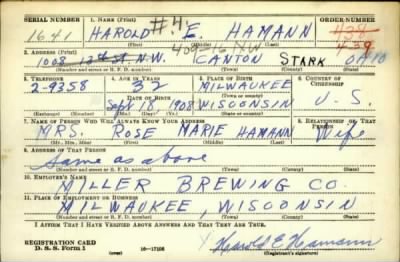 SERIAL NUMBER 1. NAME (Print) ORDER NUMBER
1641 HAROLD #4 E. HAMANN 438
(First) (Middle) (Last) 439
2. ADDRESS (Print) 409-16 N.W.
1008 12th St. N.W. CANTON STARK OHIO
(Number and street or R. F. D. number) (Town) (County) (State)
3. TELEPHONE 4. AGE IN YEARS 5. PLACE OF BIRTH 6. COUNTRY OF CITIZENSHIP
2-9358 32 MILWAUKEE
DATE OF BIRTH (Town or county)
Sept 18, 1908 WISCONSIN U. S.
(Exchange) (Number) (Mo.) (Day) (Yr.) (State or country)
7. NAME OF PERSON WHO WILL ALWAYS KNOW YOUR ADDRESS 8. RELATIONSHIP OF THAT PERSON
MRS. ROSE MARIE HAMANN Wife
(Mr., Mrs., Miss) (First) (Middle) (Last)
9. ADDRESS OF THAT PERSON
Same as above
(Number and street or R. F. D. number) (Town) (County) (State)
10. EMPLOYER'S NAME
MILLER BREWING CO.
11. PLACE OF EMPLOYMENT OR BUSINESS
MILWAUKEE, WISCONSIN
(Number and street or R. F. D. number) (Town) (County) (State)
I AFFIRM THAT I HAVE VERIFIED ABOVE ANSWERS AND THAT THEY ARE TRUE.
REGISTRATION CARD
D. S. S. Form 1 16-17105 Harold E Hamann
(Registrant's signature)